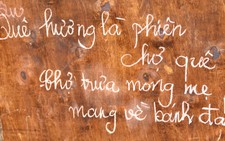 Quê hương là phiên
chợ quê
Chờ trưa mong mẹ
mang về bánh đa